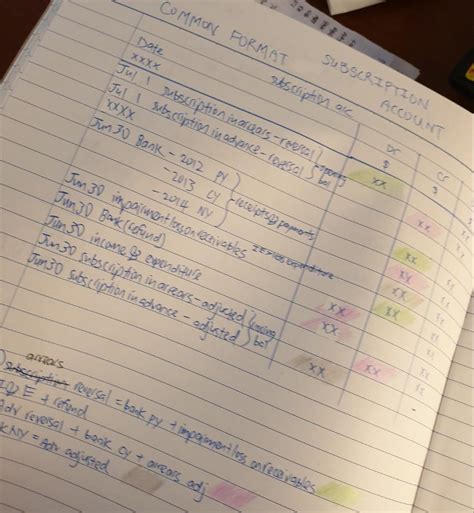 COMMON FORMAT SUBSCRIPTION ACCOUNT
subscription a/c
Date Dr Cr
xxxx $ $
Jul 1 subscription in arrears - reversal } opening bal xx
Jul 1 subscription in advance - reversal xx
xxxx
Jun 30 Bank - 2012 PY } receipts & payments xx
- 2013 CY xx
- 2014 NY xx
Jun 30 impairment loss on receivables xx
Jun 30 Bank (refund) xx
Jun 30 income & expenditure xx
Jun 30 subscription in arrears - adjusted } closing bal xx
Jun 30 subscription in advance - adjusted xx
arrears
subscription reversal = bank PY + impairment loss on receivables
E + refund
adv reversal + bank CY + arrears adj
NY = Adv adjusted